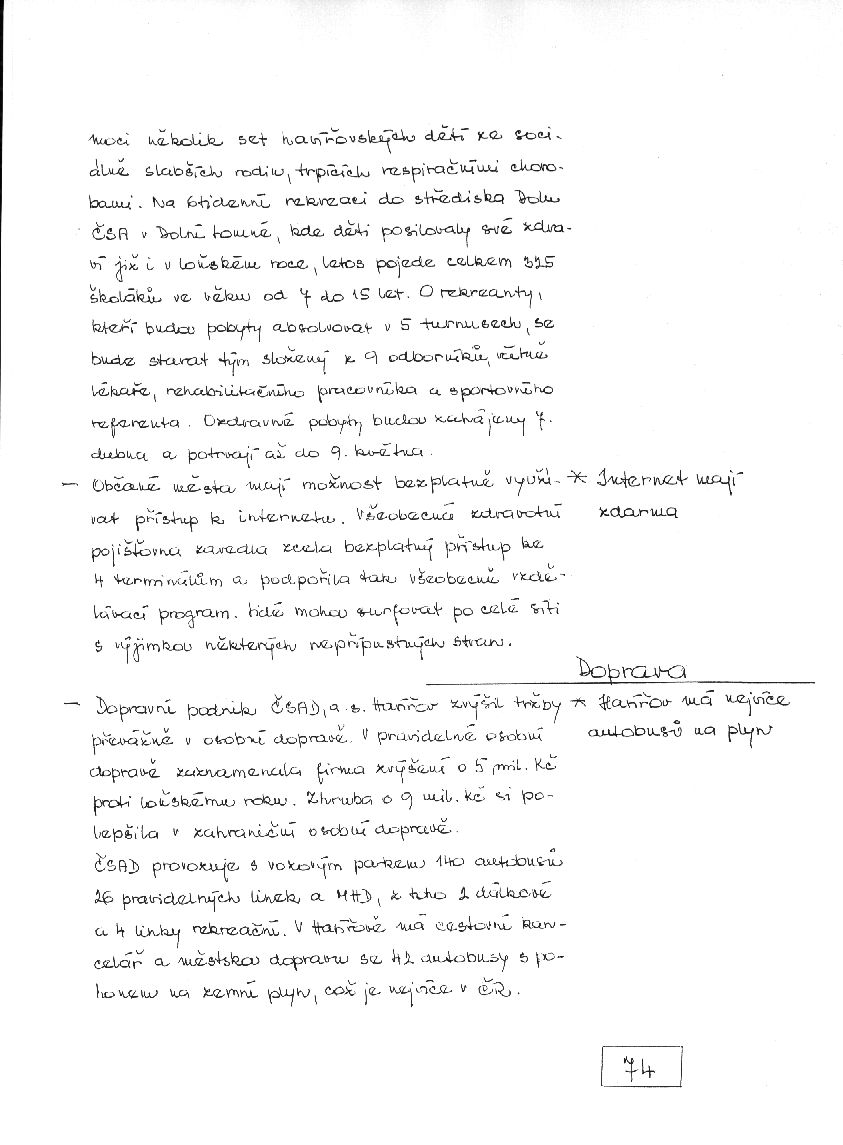 moci několik set havířovských dětí ze soci-
álně slabších rodin, trpících respiračními choro-
bami. Na 6týdenní rekreaci do střediska Dolu
ČSA v Dolní Lomné, kde děti posilovaly své zdra-
ví již i v loňském roce, letos pojede celkem 325
školáků ve věku od 7 do 15 let. O rekreanty,
kteří budou pobyty absolvovat v 5 turnusech, se
bude starat tým složený z 9 odborníků, včetně
lékaře, rehabilitačního pracovníka a sportovního
referenta. Ozdravné pobyty budou zahájeny 7.
dubna a potrvají až do 9. května.
— Občané města mají možnost bezplatně využí- * Internet mají
vat přístup k internetu. Všeobecná zdravotní zdarma
pojišťovna zavedla zcela bezplatný přístup ke
4 terminálům a podpořila tak všeobecně vzdě-
lávací program. Lidé mohou surfovat po celé síti
s výjimkou některých nepřípustných stran.
Doprava
— Dopravní podnik ČSAD, a.s. Havířov zvýšil tržby * Havířov má nejvíce
převážně v osobní dopravě. V pravidelné osobní autobusů na plyn
dopravě zaznamenala firma zvýšení o 5 mil. Kč
proti loňskému roku. Zhruba o 9 mil. Kč si po-
lepšila v zahraniční osobní dopravě.
ČSAD provozuje s vozovým parkem 140 autobusů
26 pravidelných linek a MHD, z toho 2 dálkové
a 4 linky rekreační. V Havířově má cestovní kan-
celář a městskou dopravu se 42 autobusy s po-
honem na zemní plyn, což je nejvíce v ČR.
74